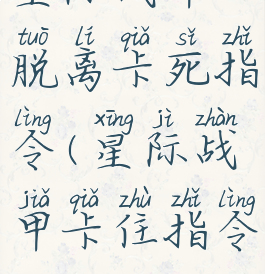 tuō lí qiǎ sǐ zhǐ
脱离卡死指
lìng xīng jì zhàn
令(星际战
jiǎ qiǎ zhù zhǐ lìng
甲卡住指令